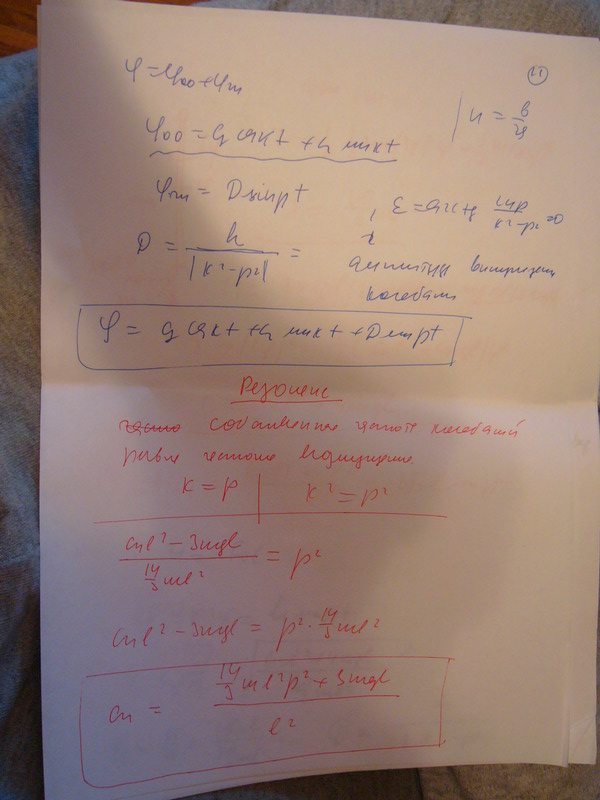 11
φ = φ₀₀ + φₘ
| н = в/а
φ₀₀ = C₁ cos kt + C₂ sin kt
φₘ = D sin pt
D = h / |k² - p²| =
k² - p² = 0
амплитуды вынужден
колебаний
φ = C₁ cos kt + C₂ sin kt + D sin pt
Резонанс
собственная частота колебаний
равна частоте
k = p | k² = p²
(c₁l² - 3mgl) / (14/3 ml²) = p²
c₁l² - 3mgl = p² · 14/3 ml²
c₁ = (14/3 ml²p² + 3mgl) / l²